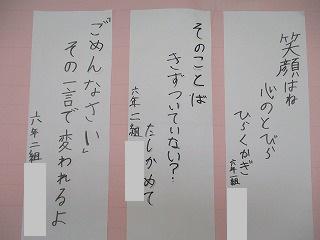 笑顔はね
心のとびら
ひらくかぎ
六年一組
そのことば
きずついていない？
たしかめて
六年一組
ごめんなさい」
その一言で変われるよ
六年二組